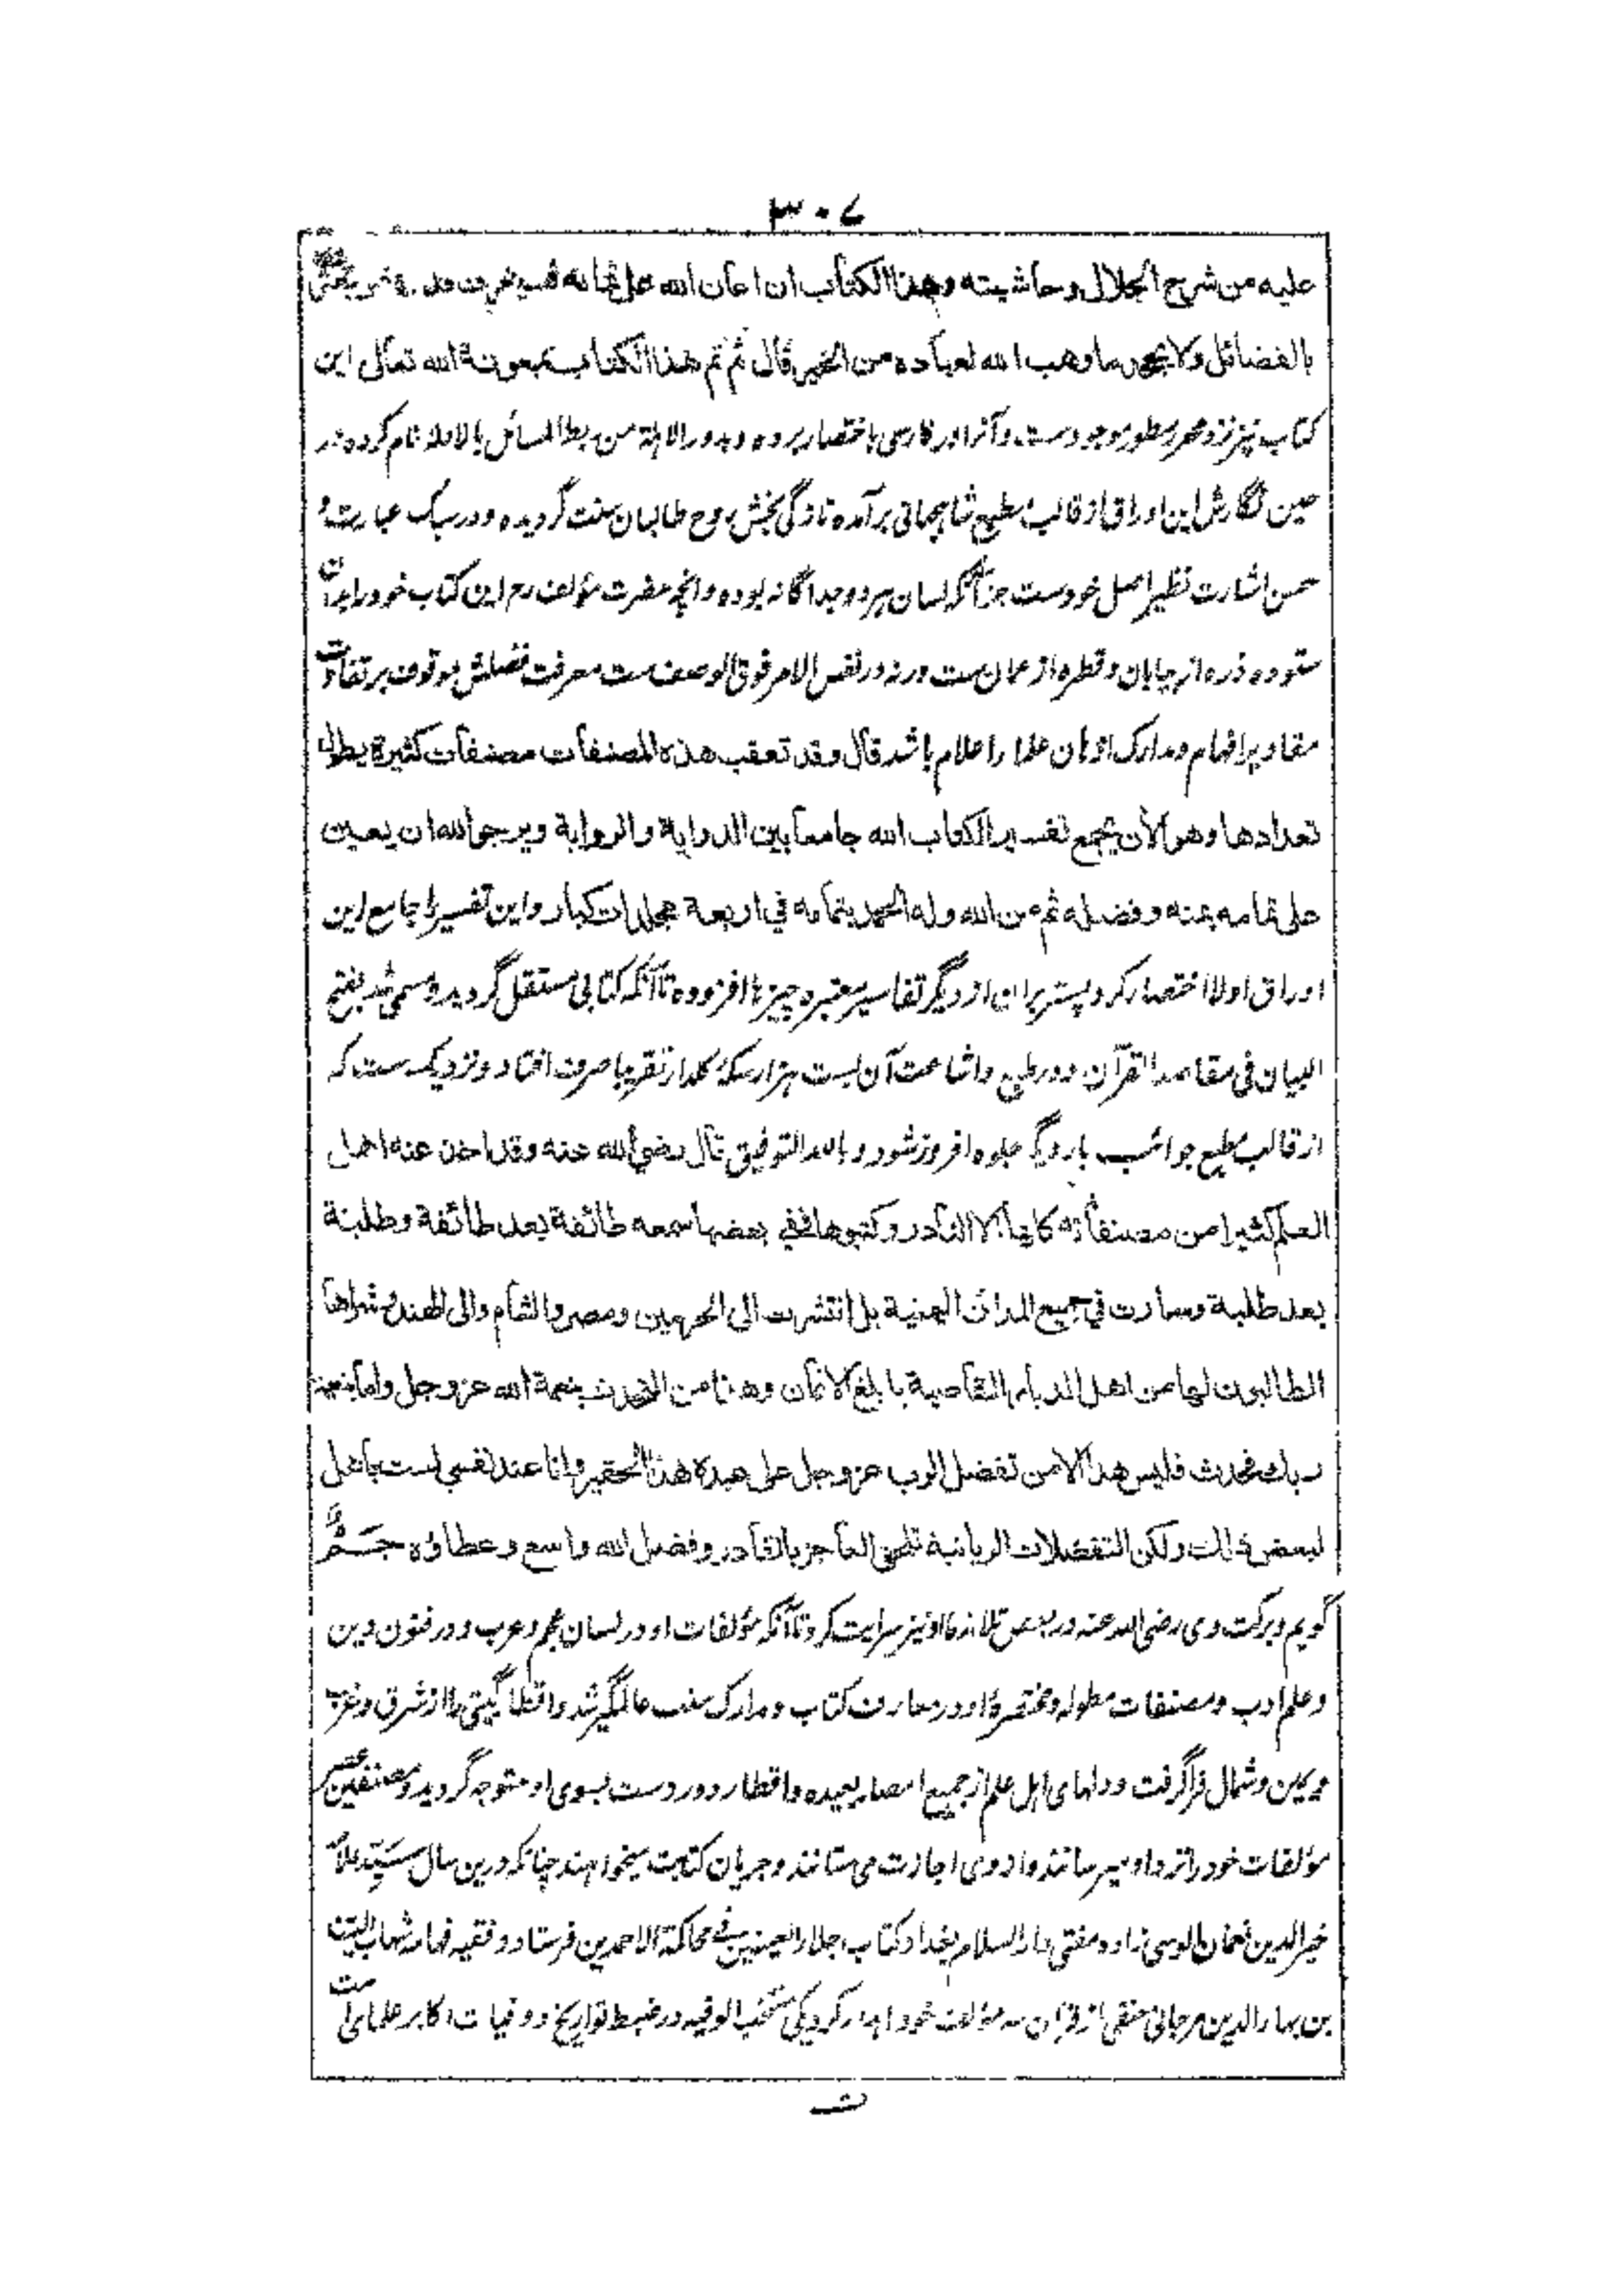 ٣٠٧
عليه من شرح الجلال وحاشيته وهذا الكتاب ان اعان الله على تمامه فسيعرف قدره من يعترف
بالفضائل ولا يجحد ما وهب الله لعباده من الخير قال ثم تم هذا الكتاب بمعونة الله تعالى این
کتاب نیز نزد محرر سطور موجودست وآنرا در فارسی باختصار برده و بدور الاهلة من ربط المسائل بالادلة نام کرده در
عین نگارش این اوراق از قالب مطبع شاهجهانی برآمده تازگی بخش روح طالبان سنت گردیده ودر سبک عبارت و
حسن اشارت نظیر اصل خودست جز آنکه لسان هردو جداگانه بوده وانچه حضرت مؤلف رح این کتاب خود را بدان
ستوده ذره از بیابان وقطره از عمان ست ورنه در نفس الامر فوق الوصف ست معرفت فضلش موقوف بر تفاوت
مقادیر افهام ومدارک اذهان علما را اعلام باشد قال وقد تعقب هذه المصنفات مصنفات كثيرة يطول
تعدادها وهو الآن يجمع تفسيرا لكتاب الله جامعا بين الدراية والرواية ويرجو الله ان يعين
على تمامه بمنه وفضله ثم من الله وله الحمد بتمامه في اربعة مجلدات كبار واین تفسیر را جامع این
اوراق اولا اختصار کرد پستر بران از دیگر تفاسیر معتبره چیزها افزوده تا آنکه کتابی مستقل گردید ومسمی شد بفتح
البیان فی مقاصد القرآن ودر طبع واشاعت آن بست هزار سکهٔ کلدار تقریبا صرف افتاد ونزدیک ست که
از قالب مطبع جوائب بار دیگر جلوه افروز شود وبالله التوفیق قال رضي الله عنه وقد اخذ عنه اهل
العلم كثيرا من مصنفاته كلها الا النادر وكتبوها ففي بعضها سمعه طائفة بعد طائفة وطلبة
بعد طلبة وسارت في جميع المدائن اليمنية بل انتشرت الى الحرمين ومصر والشام والى الهند وشراها
الطالبون لها من اهل الديار القاصية بابلغ الاثمان وهذا من التحدث بنعمة الله عز وجل واما بنعمة
ربك فحدث فليس هذا الا من تفضل الرب عز وجل على عبده هذا الحقير وانا عند نفسي لست باهل
لبعض ذلك ولكن التفضلات الربانية تلحق العاجز بالقادر وفضل الله واسع وعطاؤه جَمٌّ
گویم وبرکت وی رضی الله عنه در بعض تلامذهٔ او نیز سرایت کرد تا آنکه مؤلفات او در لسان عجم وعرب ودر فنون دین
وعلم ادب ومصنفات مطوله ومختصرهٔ او در معارف کتاب ومدارک سنت عالمگیر شد واقطار گیتی را از شرق وغرب
ویمین وشمال فرا گرفت ودلهای اهل علم از جمیع امصار بعیده واقطار دور دست بسوی او متوجه گردید ومصنفین عصر
مؤلفات خود را نزد او میرسانند واز وی اجازت می ستانند وجریان کتابت میخواهند چنانکه درین سال سید علامه
خیر الدین نعمان آلوسی زاده مفتی دار السلام بغداد کتاب جلاء العینین فی محاکمة الاحمدین فرستاد وفقیه فهامه شهاب الدین
بن بهاء الدین مرجانی حنفی از قزان سه مؤلف خود اهداء کرد یکی منتخب الوفیه در ضبط تواریخ ووفیات اکابر علمای ملت
ت